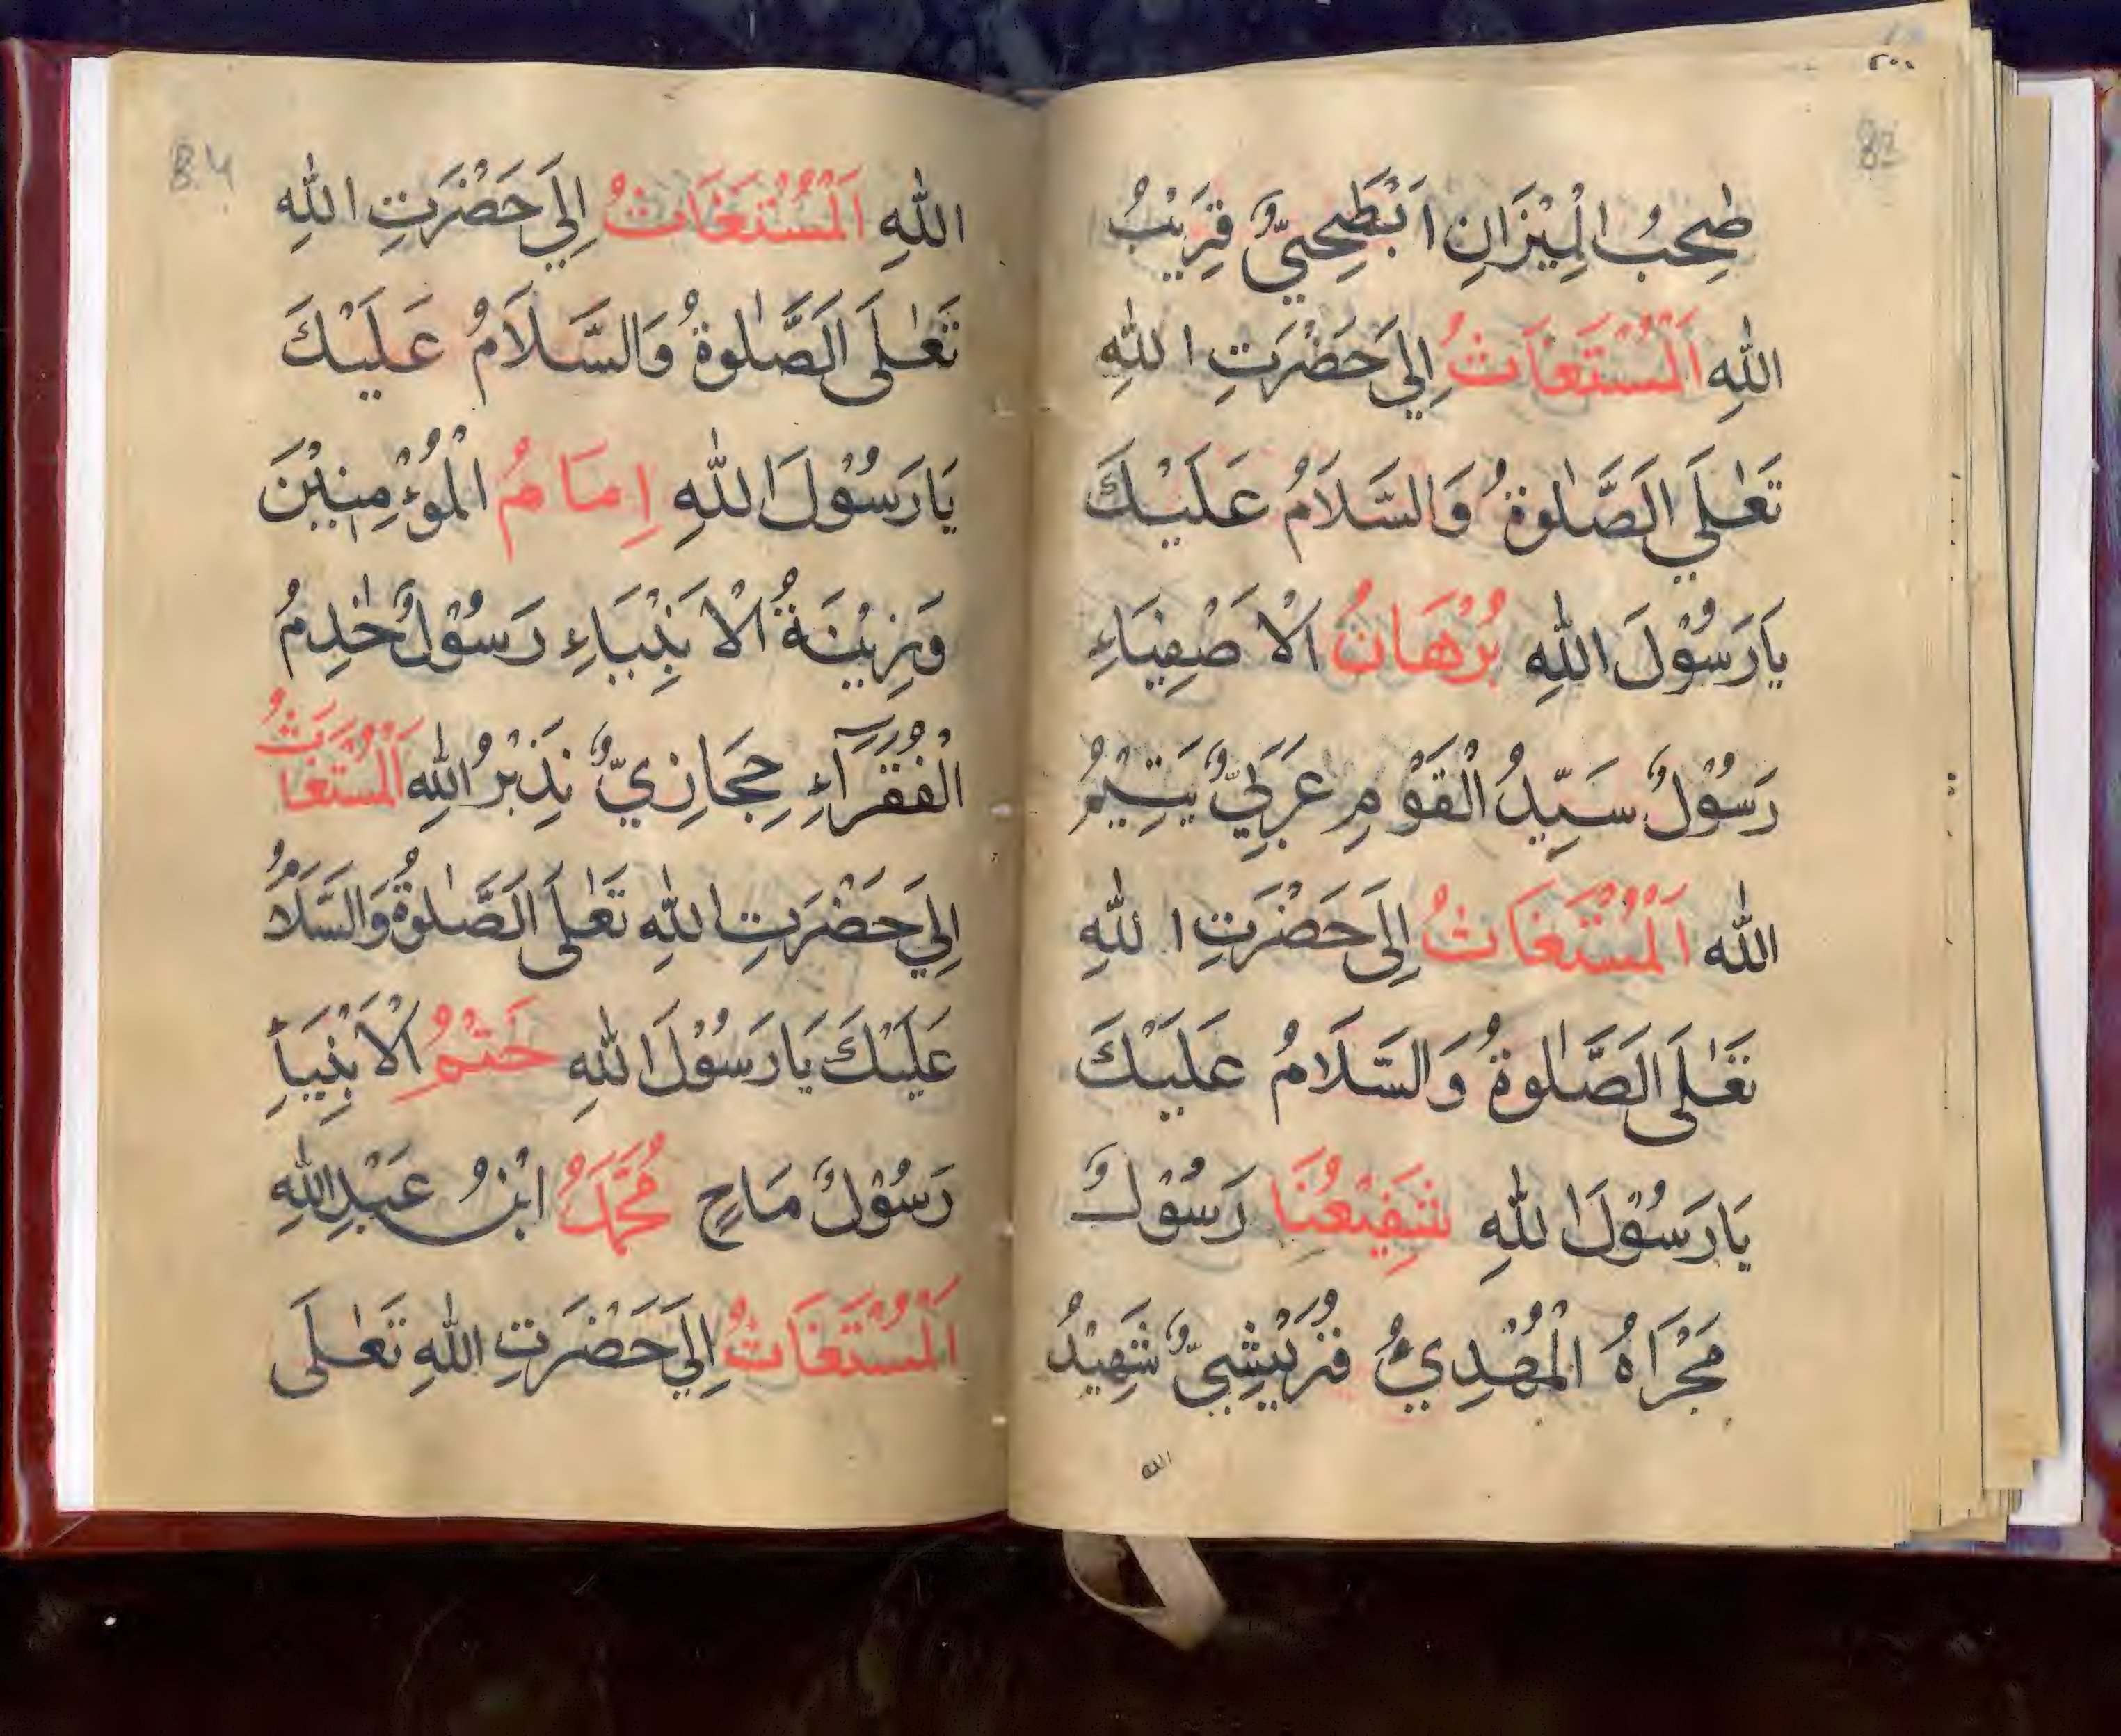 ٢٠٠
82
صٰحِبُ الْمِيْزَانِ اَبْطَحِيٌّ قَرِيْبُ
اللّٰهِ اَلْمُسْتَغَاثُ اِلٰي حَضْرَتِ اللّٰهِ
تَعٰلَي اَلصَّلٰوةُ وَالسَّلَامُ عَلَيْكَ
يَارَسُوْلَ اللّٰهِ بُرْهَانُ الْاَصْفِيَاءِ
رَسُوْلٌ سَيِّدُ الْقَوْمِ عَرَبِيٌّ يَتِيْمُ
اللّٰه اَلْمُسْتَغَاثُ اِلَى حَضْرَتِ اللّٰهِ
تَعٰلَى اَلصَّلٰوةُ وَالسَّلَامُ عَلَيْكَ
يَارَسُوْلَ اللّٰهِ شَفِيْعُنَا رَسُوْلٌ
مَجْرَاهُ الْمُهْدِيُّ قُرَيْشِيٌّ شَهِيْدُ
الله
84
اللّٰهِ اَلْمُسْتَغَاثُ اِلَي حَضْرَتِ اللّٰهِ
تَعٰلَى اَلصَّلٰوةُ وَالسَّلَامُ عَلَيْكَ
يَارَسُوْلَ اللّٰهِ اِمَامُ الْمُؤْمِنِيْنَ
وَزِيْنَةُ الْاَنْبِيَاءِ رَسُوْلٌ خٰدِمُ
الْفُقَرَآءِ حِجَازِيٌّ نَذِيْرُ اللّٰهِ اَلْمُسْتَغَاثُ
اِلَي حَضْرَتِ اللّٰهِ تَعٰلَى اَلصَّلٰوةُ وَالسَّلَامُ
عَلَيْكَ يَارَسُوْلَ اللّٰهِ خَتْمُ الْاَنْبِيَاءِ
رَسُوْلٌ مَاحٍ مُحَمَّدُ ابْنُ عَبْدِ اللّٰهِ
اَلْمُسْتَغَاثُ اِلَي حَضْرَتِ اللّٰهِ تَعٰلَى